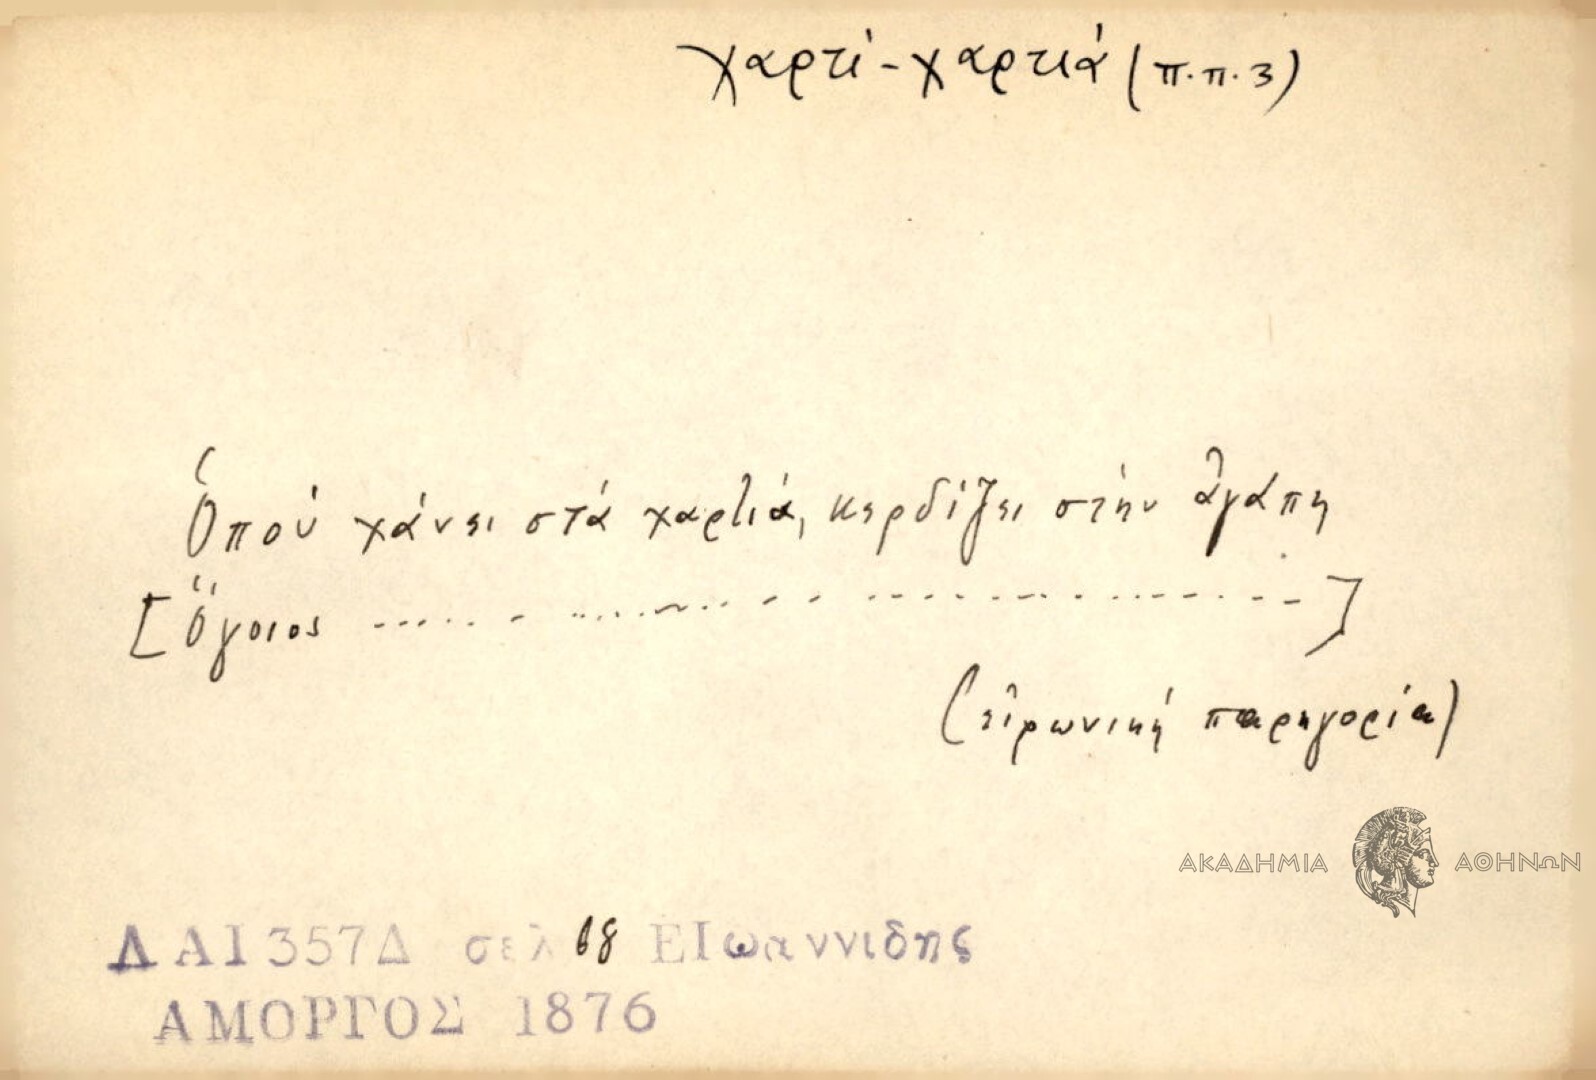 χαρτί - χαρτιά (π.π. 3)
Ὁποὺ χάνει στὰ χαρτιά, κερδίζει στὴν ἀγάπη
[Ὅγοιος ...................................]
(εἰρωνική παρηγορία)
ΑΚΑΔΗΜΙΑ ΑΘΗΝΩΝ
ΔΑΙ357Δ σελ 68 ΕΙωαννιδης
ΑΜΟΡΓΟΣ 1876